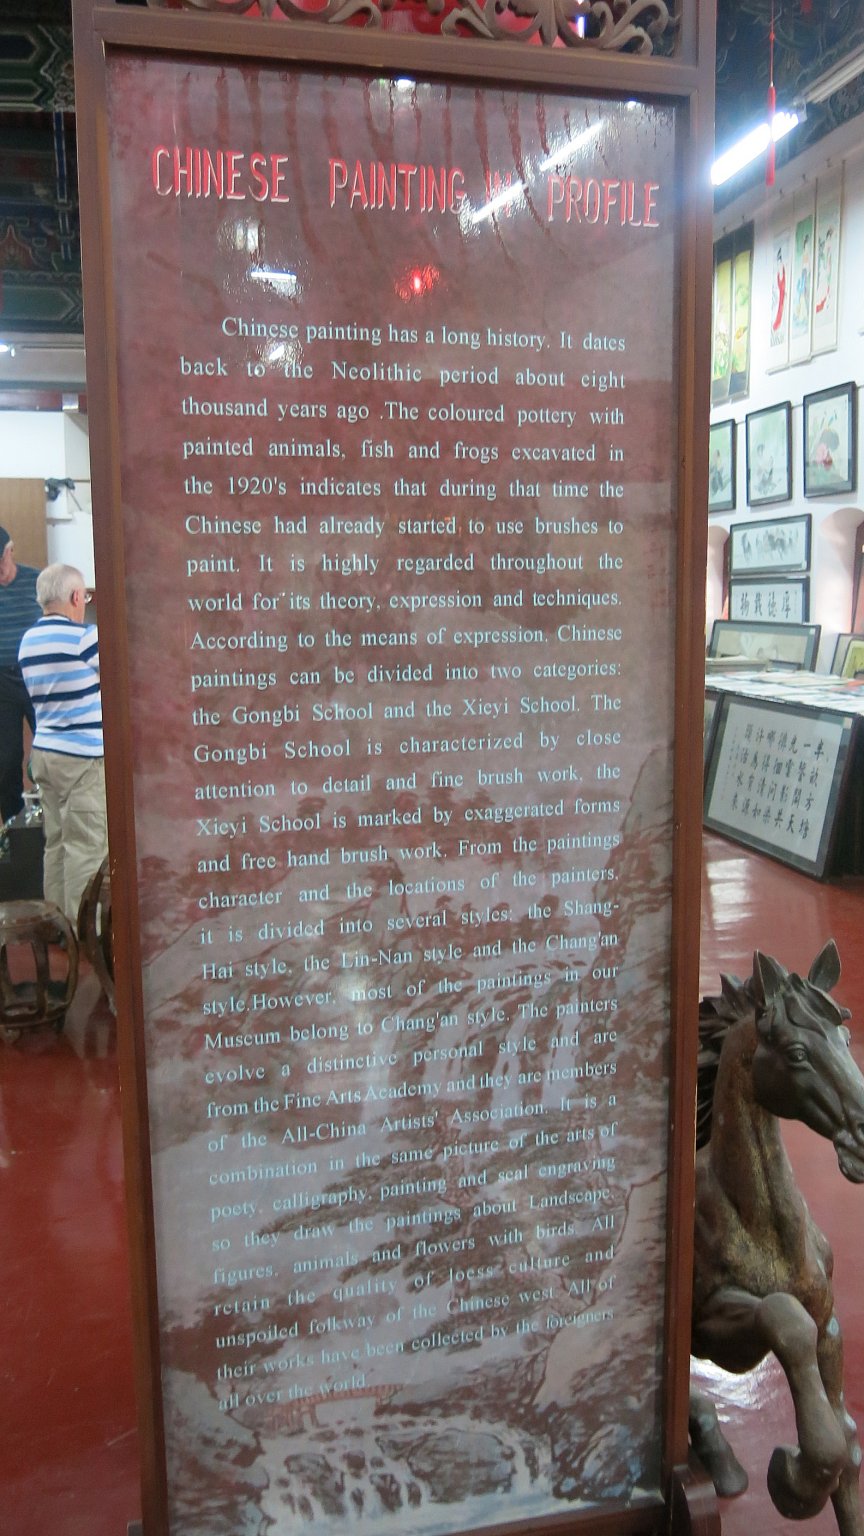 CHINESE PAINTING IN PROFILE
Chinese painting has a long history. It dates
back to the Neolithic period about eight
thousand years ago .The coloured pottery with
painted animals, fish and frogs excavated in
the 1920's indicates that during that time the
Chinese had already started to use brushes to
paint. It is highly regarded throughout the
world for its theory, expression and techniques.
According to the means of expression, Chinese
paintings can be divided into two categories:
the Gongbi School and the Xieyi School. The
Gongbi School is characterized by close
attention to detail and fine brush work, the
Xieyi School is marked by exaggerated forms
and free hand brush work. From the paintings
character and the locations of the painters,
it is divided into several styles: the Shang-
Hai style, the Lin-Nan style and the Chang'an
style.However, most of the paintings in our
Museum belong to Chang'an style. The painters
evolve a distinctive personal style and are
from the Fine Arts Academy and they are members
of the All-China Artists' Association. It is a
combination in the same picture of the arts of
poety, calligraphy, painting and seal engraving
so they draw the paintings about Landscape,
figures, animals and flowers with birds. All
retain the quality of loess culture and
unspoiled folkway of the Chinese west. All of
their works have been collected by the foreigners
all over the world.
物載德厚